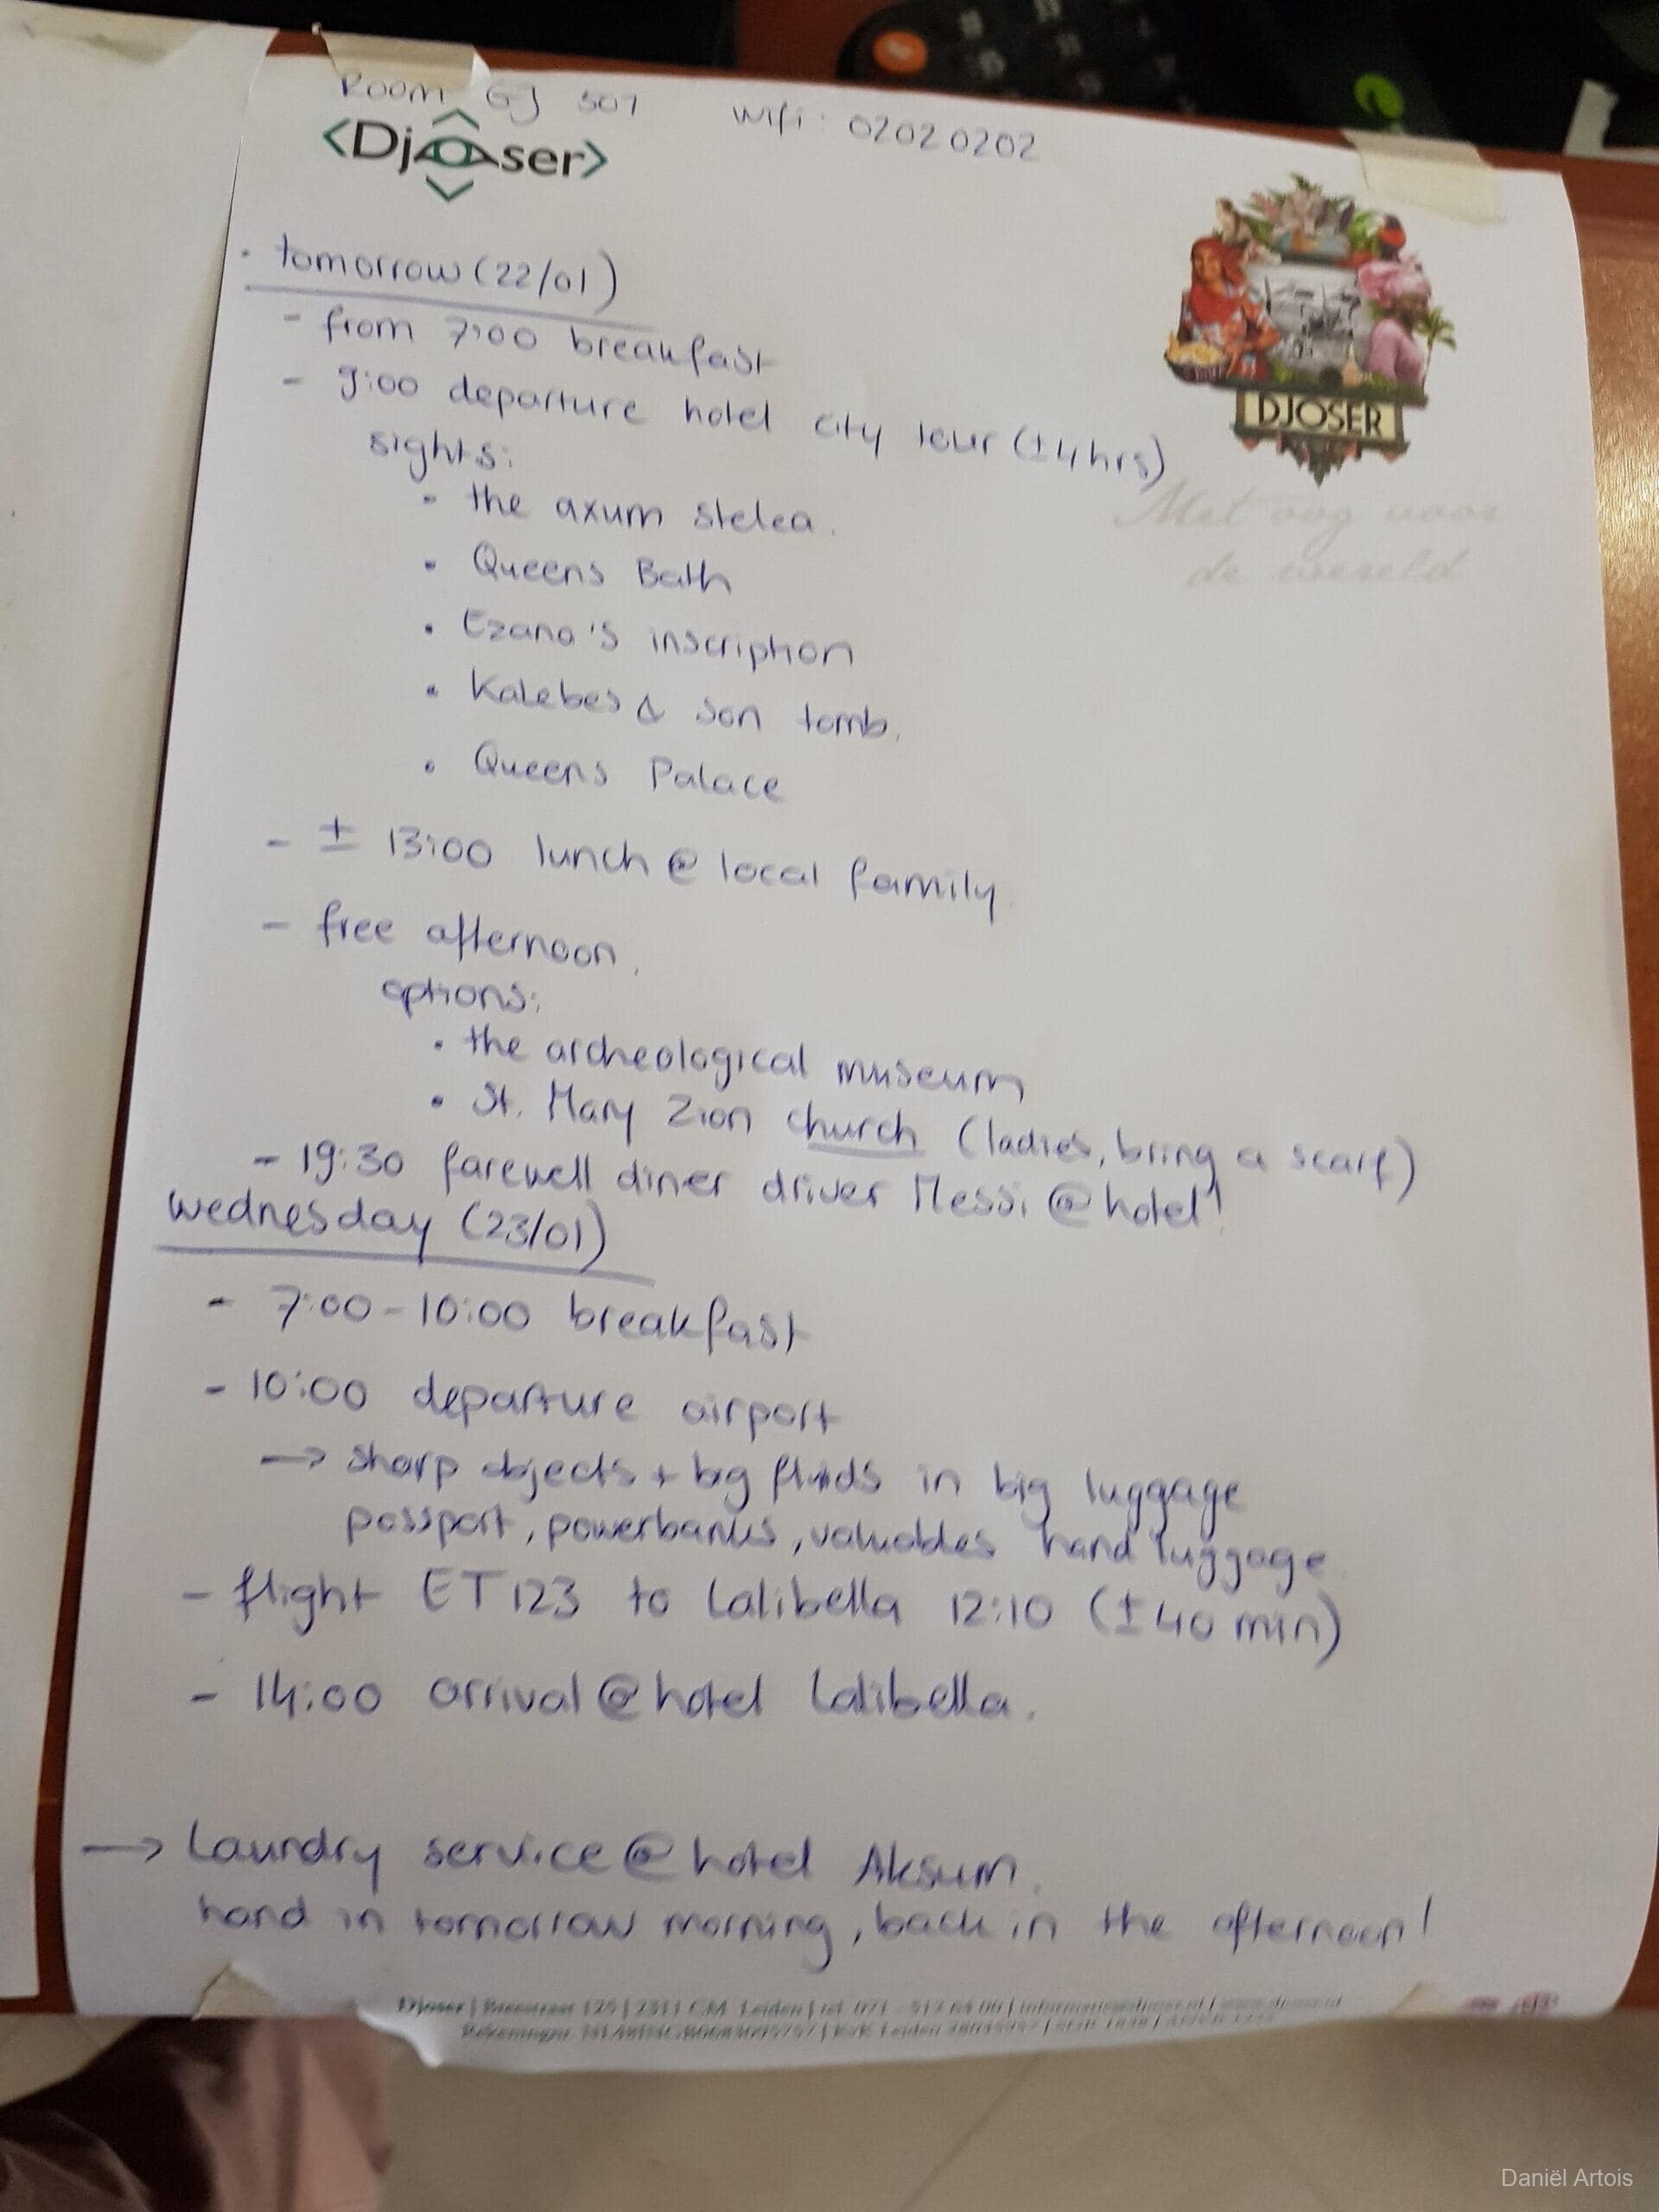 Room GJ 507 wifi: 02020202
<Djoser>
DJOSER
Met oog voor
de wereld
• tomorrow (22/01)
- from 7:00 breakfast
- 9:00 departure hotel city tour (±4hrs)
sights:
• the axum stelea.
• Queens Bath
• Ezana's inscription
• Kalebes & son tomb.
• Queens Palace
- ± 13:00 lunch @ local family
- free afternoon.
options:
• the archeological museum
• St. Mary Zion church (ladies, bring a scarf)
- 19:30 farewell diner driver Messi @ hotel!
wednesday (23/01)
- 7:00-10:00 breakfast
- 10:00 departure airport
→ sharp objects + big fluids in big luggage
passport, powerbanks, valuables hand luggage.
- flight ET123 to Lalibella 12:10 (±40 min)
- 14:00 arrival @ hotel Lalibella.
→ Laundry service @ hotel Aksum.
hand in tomorrow morning, back in the afternoon!
Djoser | Leiden | tel. 071 -
Daniël Artois